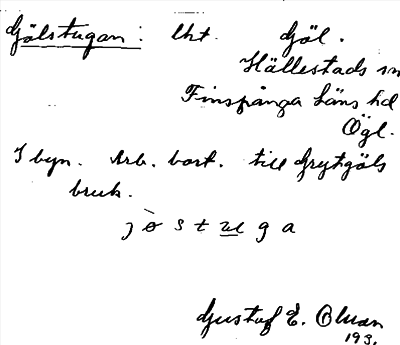 Gjölstugan: lht. Gjöl.
Hällestads sn
Finspånga läns hd
Ögl.
I byn. Arb. bost. till Grytgöls
bruk.
jòstuga
Gustaf E. Olman
193.